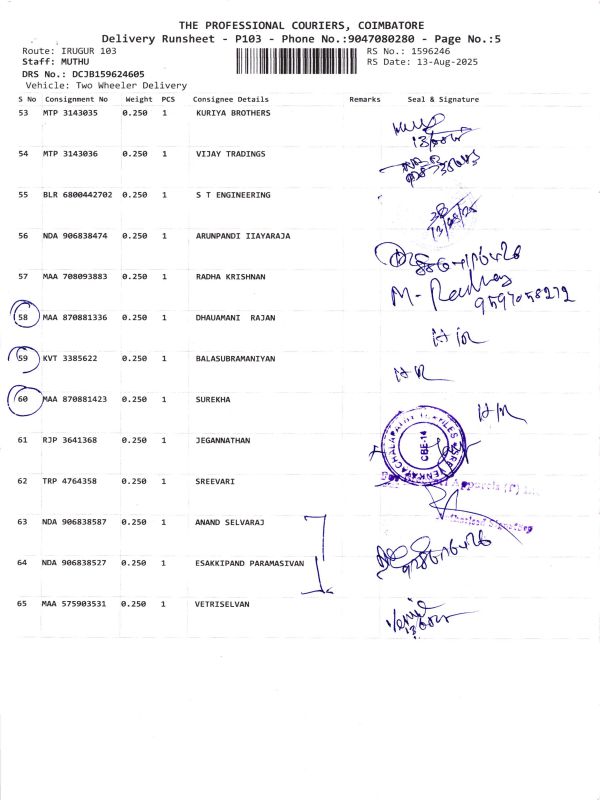 THE PROFESSIONAL COURIERS, COIMBATORE
Delivery Runsheet - P103 - Phone No.:9047080280 - Page No.:5
Route: IRUGUR 103 RS No.: 1596246
Staff: MUTHU RS Date: 13-Aug-2025
DRS No.: DCJB159624605
Vehicle: Two Wheeler Delivery
S No Consignment No Weight PCS Consignee Details Remarks Seal & Signature
53 MTP 3143035 0.250 1 KURIYA BROTHERS
54 MTP 3143036 0.250 1 VIJAY TRADINGS
55 BLR 6800442702 0.250 1 S T ENGINEERING
56 NDA 906838474 0.250 1 ARUNPANDI IIAYARAJA
57 MAA 708093883 0.250 1 RADHA KRISHNAN
M. Radha
9597058272
58 MAA 870881336 0.250 1 DHAUAMANI RAJAN
59 KVT 3385622 0.250 1 BALASUBRAMANIYAN
60 MAA 870881423 0.250 1 SUREKHA
61 RJP 3641368 0.250 1 JEGANNATHAN
CBE-14
62 TRP 4764358 0.250 1 SREEVARI
63 NDA 906838587 0.250 1 ANAND SELVARAJ
64 NDA 906838527 0.250 1 ESAKKIPAND PARAMASIVAN
65 MAA 575903531 0.250 1 VETRISELVAN